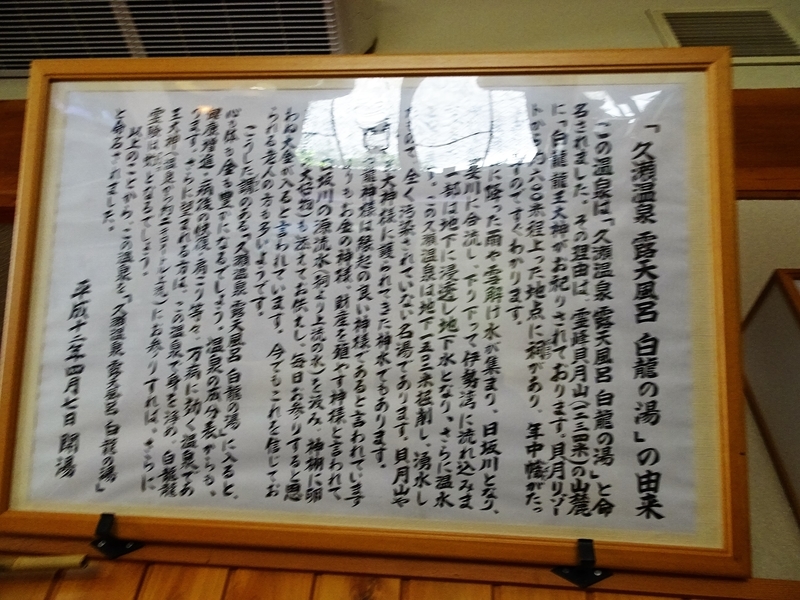 「久瀬温泉 露天風呂 白龍の湯」の由来
この温泉は、「久瀬温泉 露天風呂 白龍の湯」と命
名されました。その理由は、霊峰貝月山(一二三四米)の山麓
に「白龍龍王大神がお祀りされております。貝月リゾー
トから約六〇〇米程上った地点に祠があり、年中幟がたっ
すのですぐわかります。
に降った雨や雪解け水が集まり、日坂川となり、
斐川に合流し、下り下って伊勢湾に流れ込みま
一部は地下に浸透し地下水となり、さらに温水
す。この久瀬温泉は地下一五〇二米掘削し、湧水し
もので、全く汚染されていない名湯であります。貝月山や
王大神様に護られてきた神水でもあります。
龍神様は縁起の良い神様であると言われています
りもお金の神様、財産を殖やす神様と言われて、
坂川の源流水(祠より上流の水)を汲み、神棚に卵
大好物)も添えてお供えし、毎日お参りすると思
わぬ大金が入ると言われています。今でもこれを信じてお
られる老人の方も多いようです。
こうした謂のある「久瀬温泉 露天風呂 白龍の湯」に入ると、
心も体も金も豊かになるでしょう。温泉の成分表からも、
健康増進・病後の快復・肩こり等々、万病に効く温泉であ
ります。さらに望まれる方は、この温泉で身を浄め、白龍龍
王大神(温泉から約 上流)にお参りすれば、さらに
霊験は となるでしょう。
以上のことから、この温泉を「久瀬温泉 露天風呂 白龍の湯」
と命名されました。
平成十二年四月七日 開湯